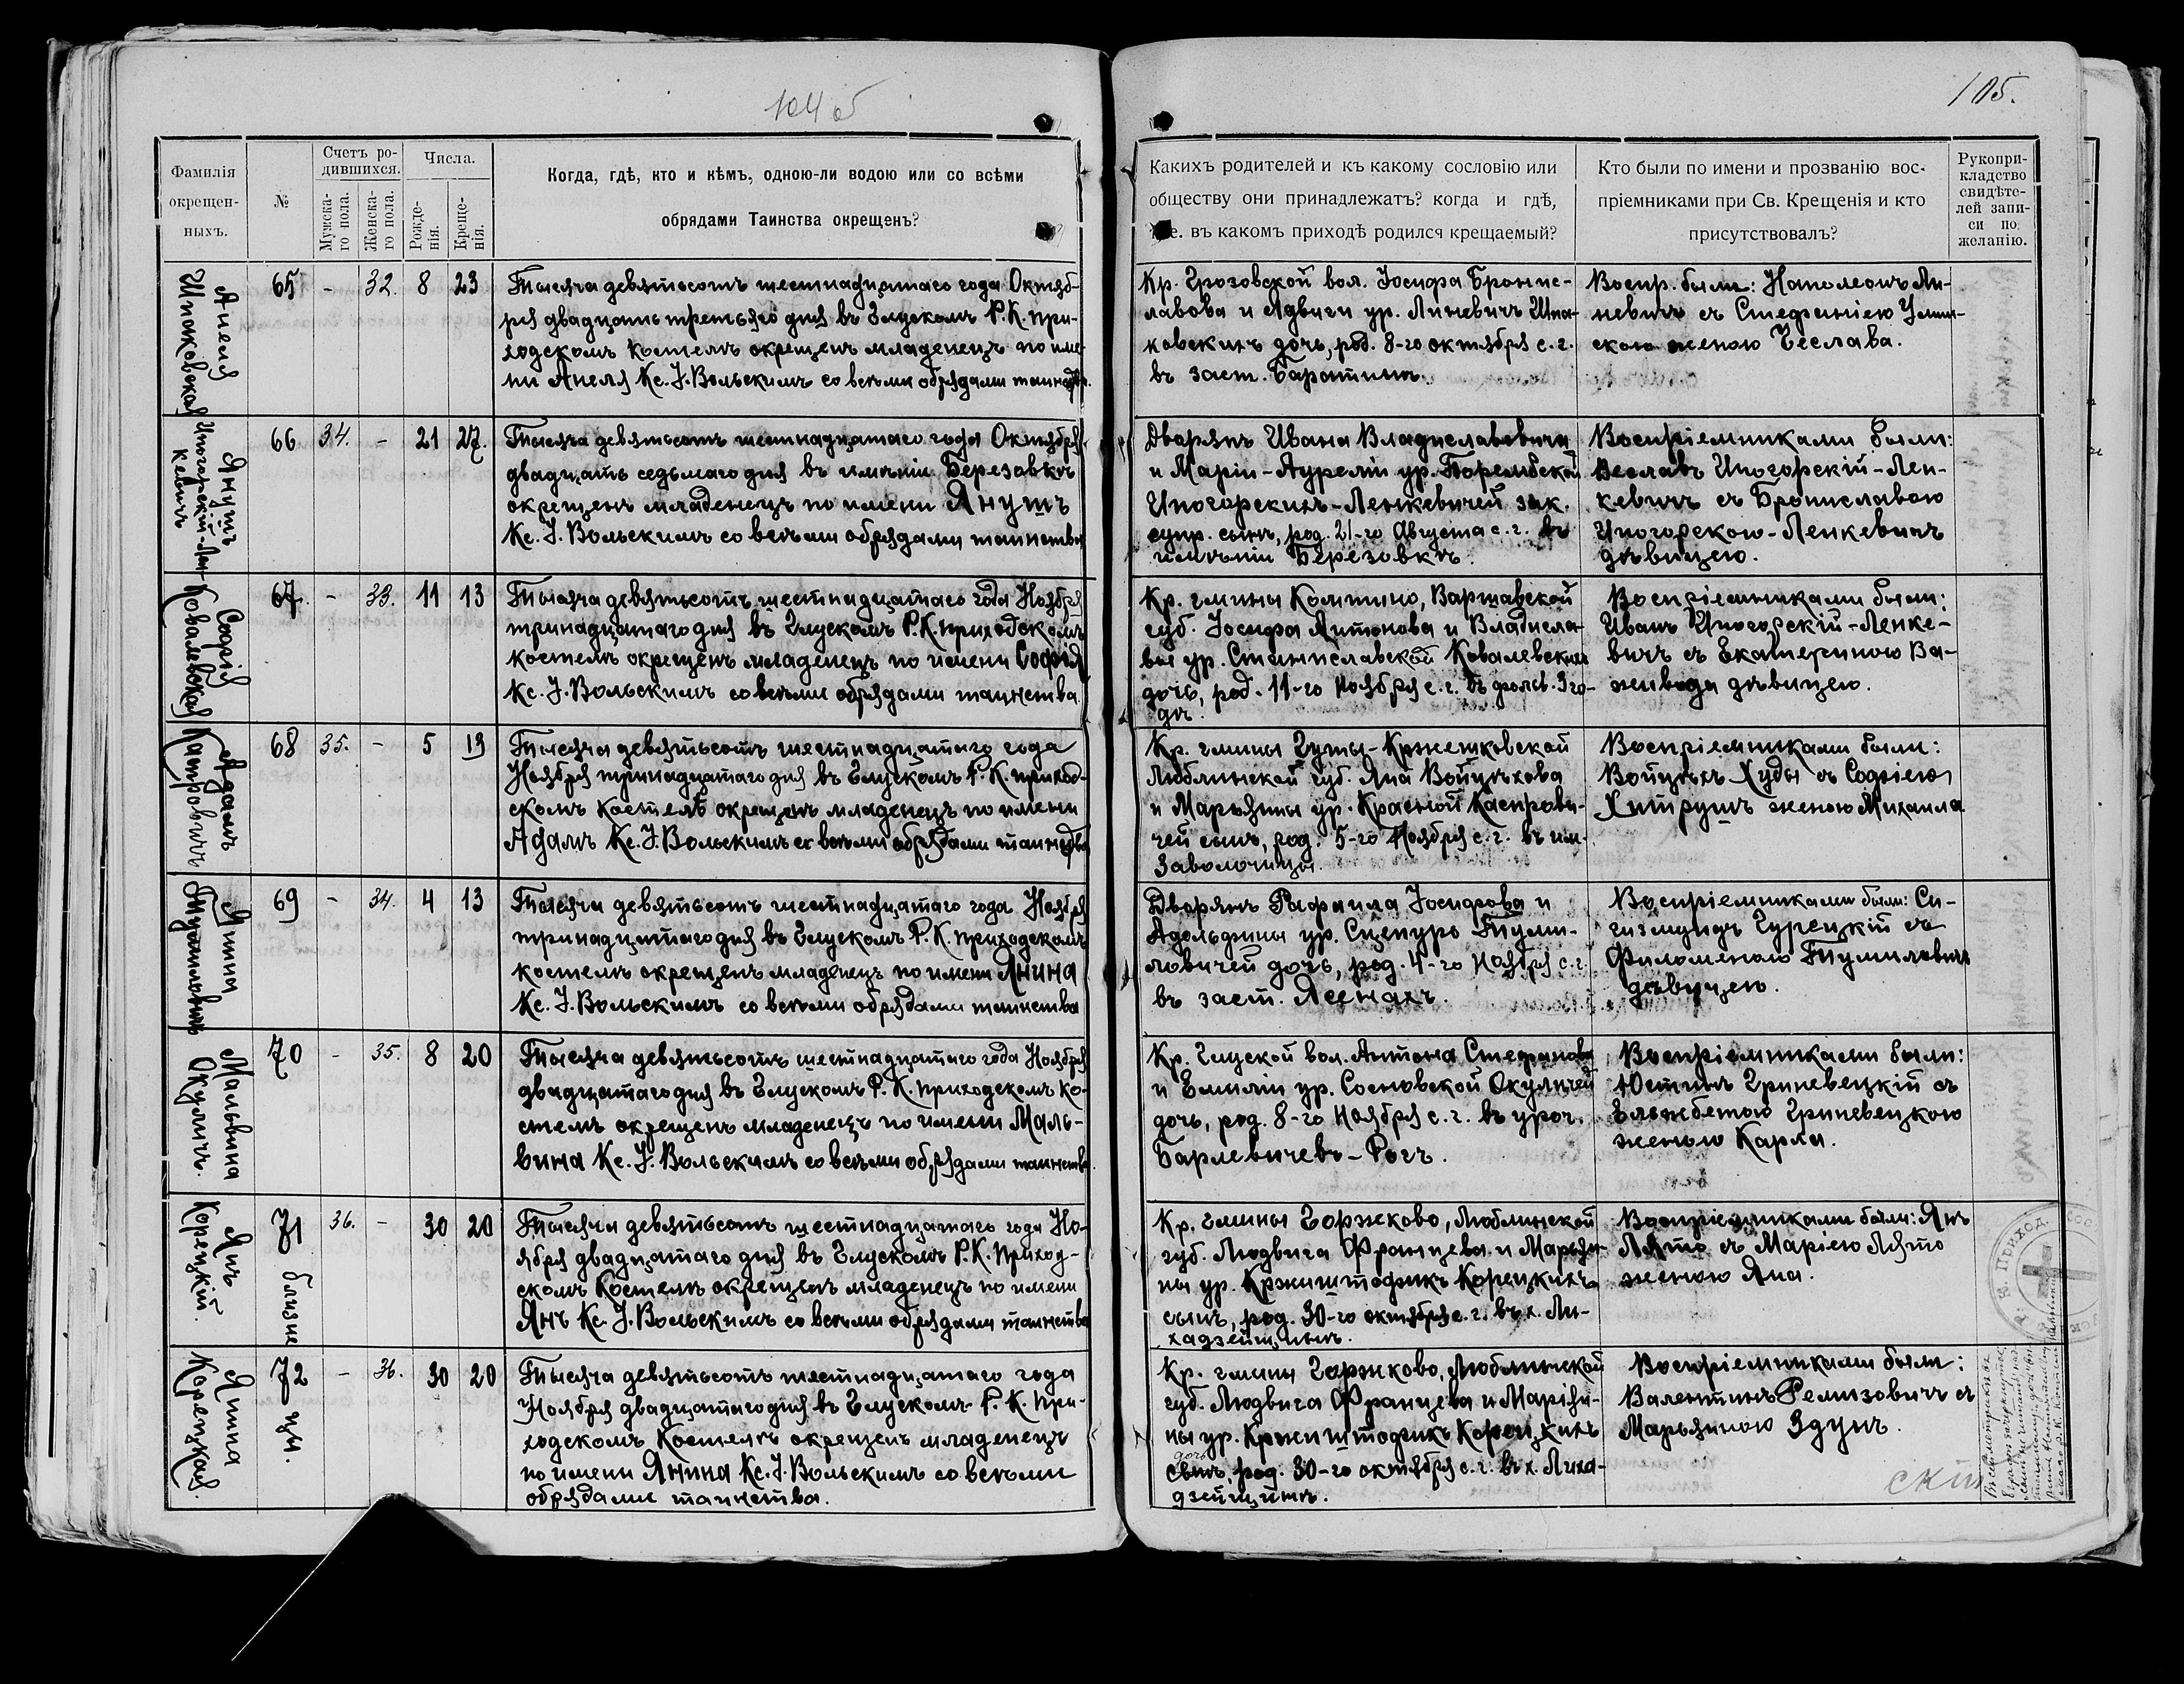 104 б
105.
Фамилія
окрещен-
ныхъ.
№
Счетъ ро-
дившихся.
Мужска-
го пола.
Женска-
го пола.
Числа.
Рожде-
нія.
Креще-
нія.
Когда, гдѣ, кто и кѣмъ, одною-ли водою или со всѣми
обрядами Таинства окрещенъ?
Какихъ родителей и къ какому сословію или
обществу они принадлежатъ? когда и гдѣ,
въ какомъ приходѣ родился крещаемый?
Кто были по имени и прозванію вос-
пріемниками при Св. Крещенія и кто
присутствовалъ?
Рукопри-
кладство
свидѣте-
лей запи-
си по
желанію.
Анеля
Шпаковская
65 - 32. 8 23
Тысяча девятьсотъ шестнадцатаго года Октяб-
ря двадцать третьяго дня въ Глускомъ Р.К. при-
ходскомъ костелѣ окрещенъ младенецъ по име-
ни Анеля Кс. І. Вольскимъ со всѣми обрядами таинства.
Кр. Грозовской вол. Іосифа Бронис-
лавова и Ядвиги ур. Линевичъ Шпа-
ковскихъ дочь, род. 8-го октября с. г.
въ заст. Баратинѣ.
Воспр. были: Наполеонъ Ли-
невичъ съ Стефаніею
женою Чеслава.
Янушъ
Ипогорскій-Лен-
кевичъ
66 34. - 21 27.
Тысяча девятьсотъ шестнадцатаго года Октября
двадцать седьмаго дня въ имѣніи Березовкѣ
окрещенъ младенецъ по имени Янушъ
Кс. І. Вольскимъ со всѣми обрядами таинства
Дворянъ Ивана Владиславовича
и Маріи-Аурелій ур.
Ипогорскихъ-Ленкевичей зак.
супр. сынъ, род. 21-го Августа с. г. въ
имѣніи Березовкѣ.
Воспріемниками были:
Веславъ Ипогорскій-Лен-
кевичъ съ Брониславою
Ипогорскою-Ленкевичъ
дѣвицею.
Софія
Ковалевская
67. - 33. 11 13
Тысяча девятьсотъ шестнадцатаго года Ноября
тринадцатаго дня въ Глускомъ Р.К. приходскомъ
костелѣ окрещенъ младенецъ по имени Софія
Кс. І. Вольскимъ со всѣми обрядами таинства
Кр. гмины Варшавской
губ. Іосифа Антонова и Владисла-
вы ур. Станиславской Ковалевскихъ
дочь, род. 11-го Ноября с. г. въ
Воспріемниками были:
Иванъ Ипогорскій-Ленке-
вичъ съ Екатериною Ва-
дѣвицею.
Адамъ
Каспровичъ
68 35. - 5 13
Тысяча девятьсотъ шестнадцатаго года
Ноября тринадцатаго дня въ Глускомъ Р. К. приход-
скомъ костелѣ окрещенъ младенецъ по имени
Адамъ Кс. І. Вольскимъ со всѣми обрядами таинства
Кр. гмины Гуты-Кржешковской
Люблинской губ. Яна Войцѣхова
и Марьянны ур. Красной Каспрови-
чей сынъ, род. 5-го Ноября с. г. въ им.
Заволочицы.
Воспріемниками были:
Войцѣхъ Худы съ Софіею
Хитрушъ женою Михаила
Янина
Тумиловичъ
69 - 34. 4 13
Тысяча девятьсотъ шестнадцатаго года Ноября
тринадцатаго дня въ Глускомъ Р. К. приходскомъ
костелѣ окрещенъ младенецъ по имени Янина
Кс. І. Вольскимъ со всѣми обрядами таинства
Дворянъ Рафаила Іосифова и
Адольфины ур. Сцепуро Туми-
ловичей дочь, род. 4-го Ноября с. г.
въ заст. Лсенахъ.
Воспріемниками были: Си-
гизмундъ Гурецкій съ
Филоменою Тумиловичъ
дѣвицею.
Мальвина
Окуличъ.
70 - 35. 8 20
Тысяча девятьсотъ шестнадцатаго года Ноября
двадцатаго дня въ Глускомъ Р. К. приходскомъ ко-
стелѣ окрещенъ младенецъ по имени Маль-
вина Кс. І. Вольскимъ со всѣми обрядами таинства.
Кр. Глуской вол. Антона Стефанова
и Емиліи ур. Сосновской Окуличей
дочь, род. 8-го Ноября с. г. въ уроч.
Барлевичевъ-Рогъ.
Воспріемниками были:
Юстинъ Гриневецкій съ
Ельжбетою Гриневецкою
женою Карла.
Янъ
Корецкій.
71 36. - 30 20
близне
Тысяча девятьсотъ шестнадцатаго года Но-
ября двадцатаго дня въ Глускомъ Р.К. приход-
скомъ Костелѣ окрещенъ младенецъ по имени
Янъ Кс. І. Вольскимъ со всѣми обрядами таинства
Кр. гмины Горжково, Люблинской
губ. Людвига Францева и Марьян-
ны ур. Кржиштофикъ Корецкихъ
сынъ, род. 30-го октября с. г. въ х. Ли-
хадзейщинѣ.
Воспріемниками были: Янъ
Лято съ Маріею Лято
женою Яна.
Янина
Корецкая.
72 - 36. 30 20
цы.
Тысяча девятьсотъ шестнадцатаго года
Ноября двадцатаго дня въ Глускомъ Р. К. при-
ходскомъ Костелѣ окрещенъ младенецъ
по имени Янина Кс. І. Вольскимъ со всѣми
обрядами таинства.
Кр. гмины Горжково, Люблинской
губ. Людвига Францева и Маріан-
ны ур. Кржиштофикъ Корецкихъ
дочь
сынъ, род. 30-го октября с. г. въ х. Лиха-
дзейщинѣ.
Воспріемниками были:
Валентинъ Ремизовичъ съ
Марьянною Здунъ.